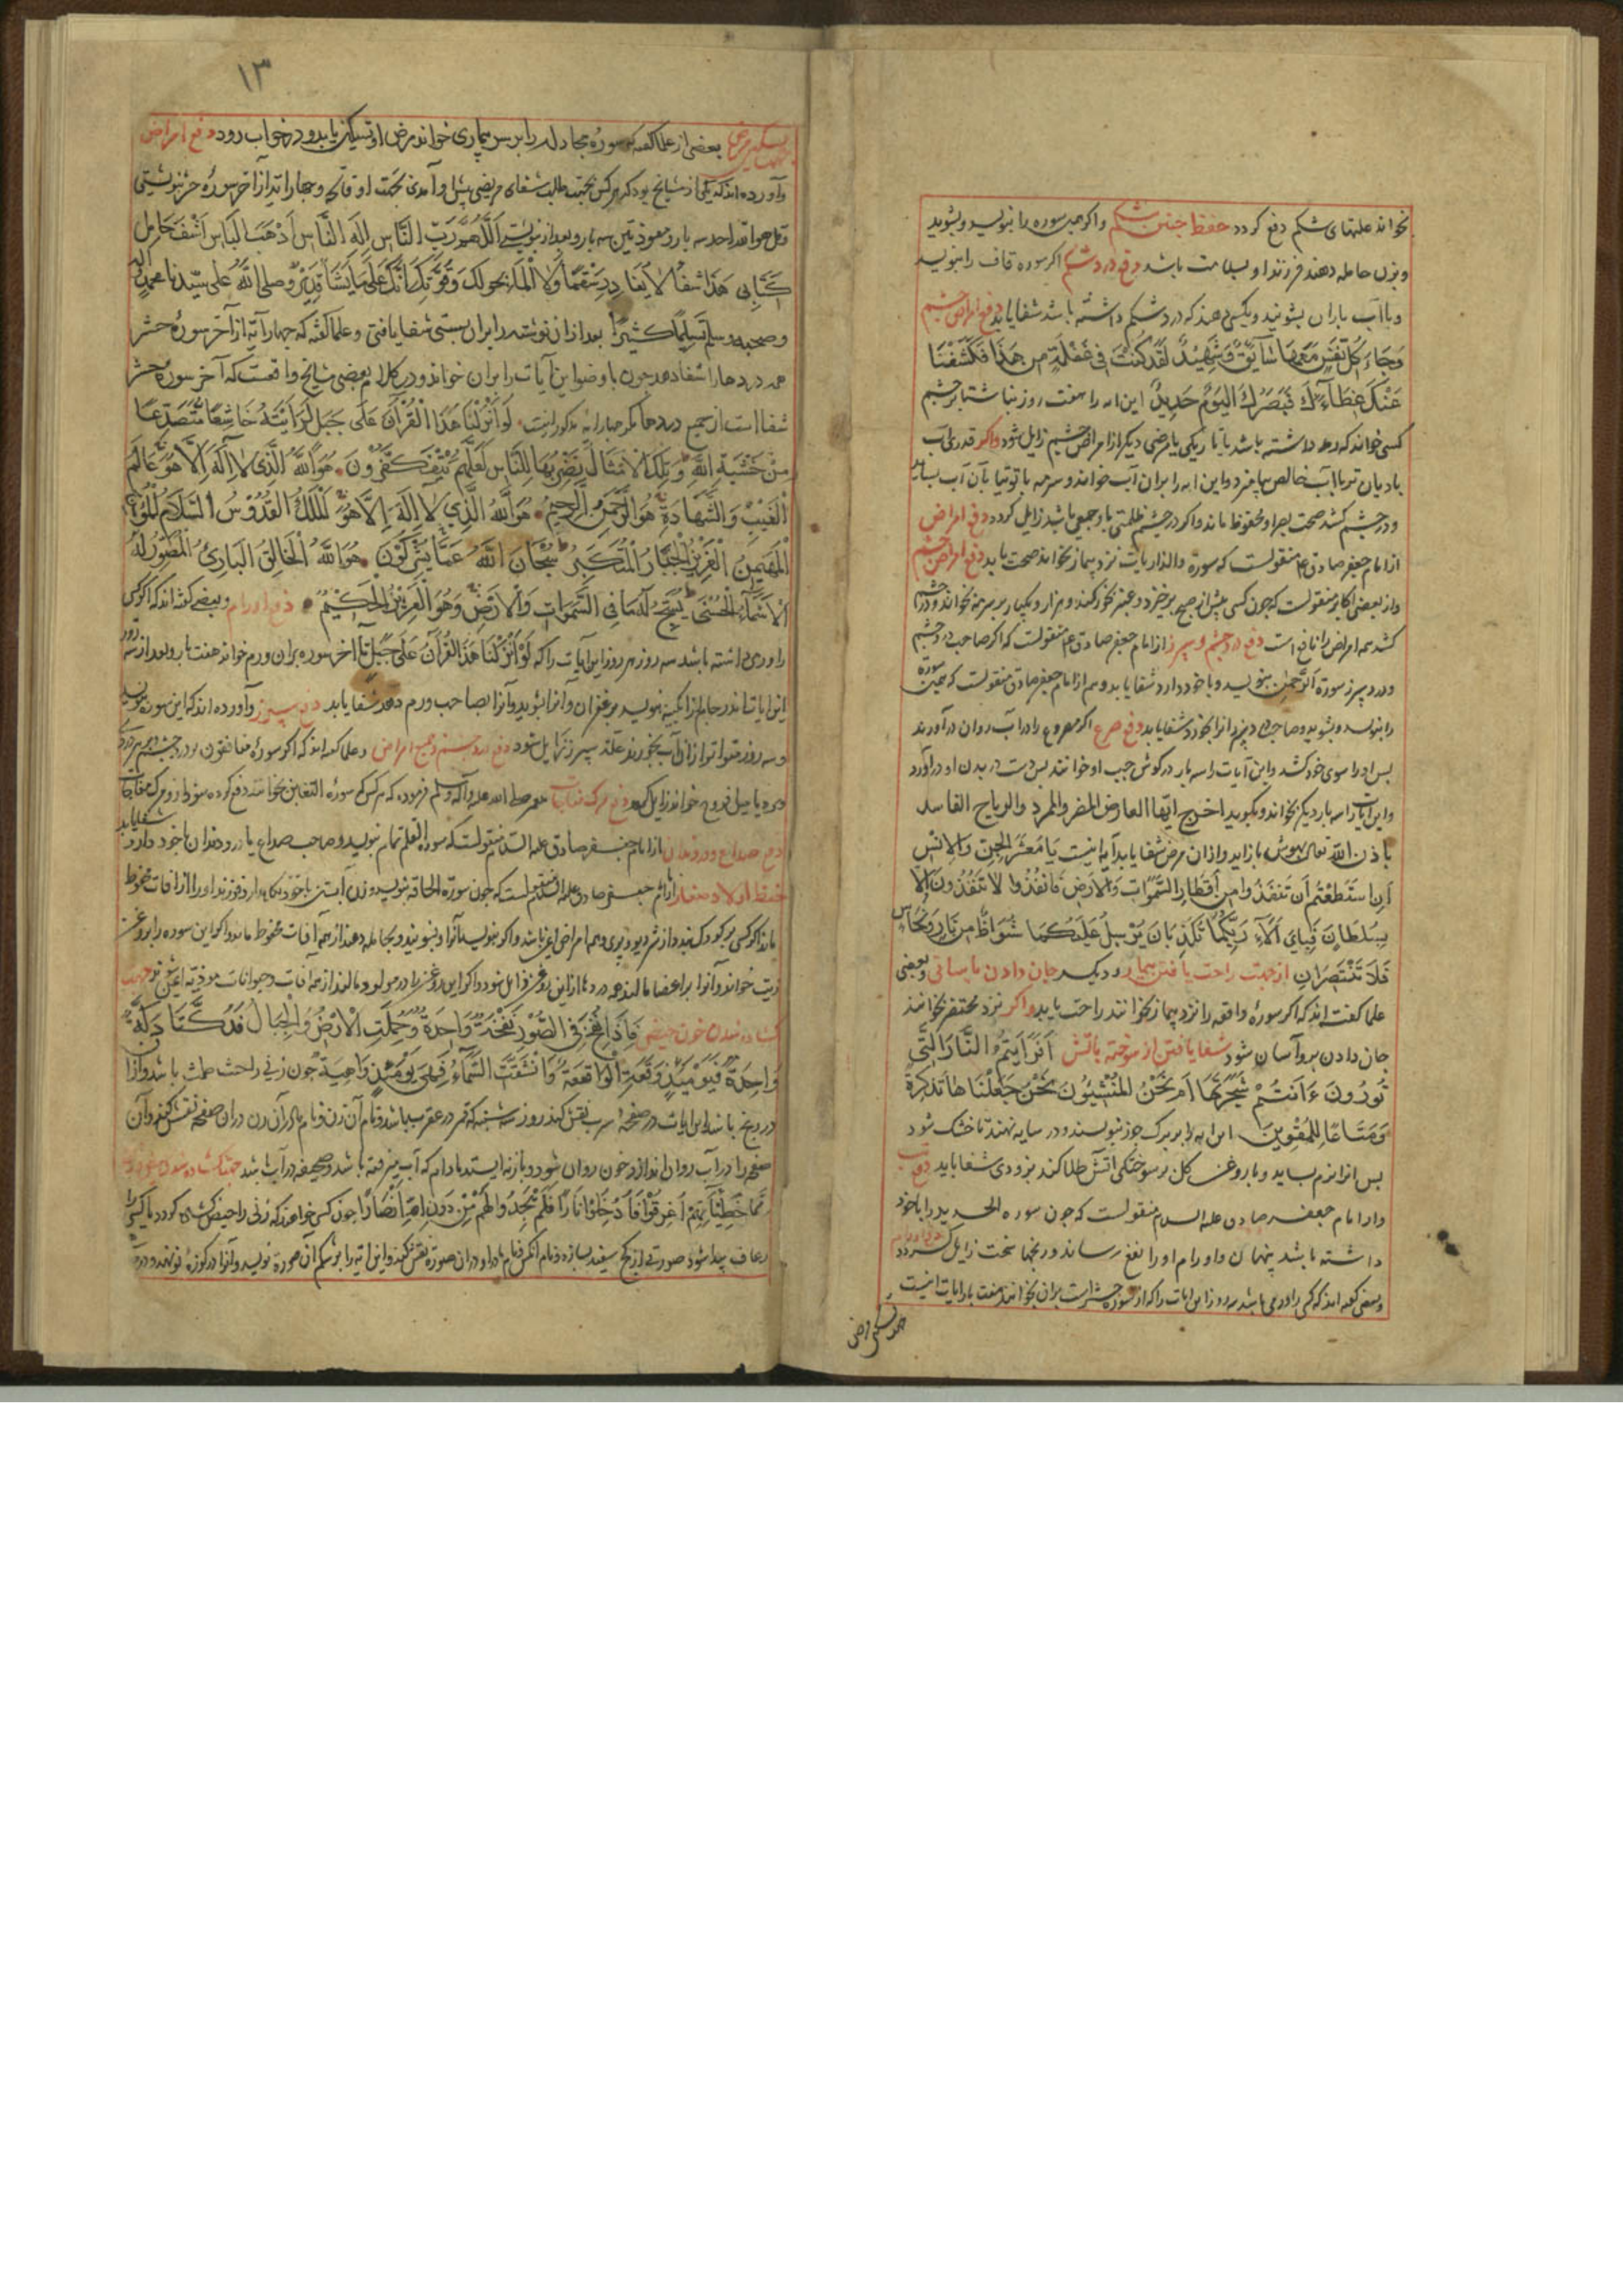 بخواند علتهای شکم دفع کردد حفظ جنین شکم واکر همین سوره را بنویسد و بشوید
وبزن حامله دهند فرزند او بسلامت باشد دفع درد شکم اکر سوره قاف را بنویسد
وبا آب باران بشویند وبکسی دهند که درد شکم داشته باشد شفا یابد دفع امراض چشم
وَجَاءَت كُلُّ نَفْسٍ مَعَهَا سَائِقٌ وَشَهِيدٌ لَقَدْ كُنْتَ فِي غَفْلَةٍ مِن هَذَا فَكَشَفْنَا
عَنْكَ غِطَاءَكَ فَبَصَرُكَ الْيَوْمَ حَدِيدٌ این ایه را هفت روز بناشتا بر چشم
کسی خواند که رمد داشته باشد یا تاریکی یا مرضی دیکر از امراض چشم زایل شود واکر قدری آب
بادیان تر با آب خالص بیامیزد و این ایه را بران آب خواند و سرمه با توتیا بان آب بساید
ودر چشم کشد صحت بصر او محفوظ ماند واکر در چشم ظلمتی یا وجعی باشد زایل کردد دفع امراض
از امام جعفر صادق ع منقولست که سوره والذاریات نزد بیمار بخواند صحت یابد دفع امراض چشم
واز بعضی اکابر منقولست که چون کسی پیش از صبح برخیزد و عنبر بخور کند و هزار و یکبار بر سرمه بخواند و در چشم
کشد همه امراض را نافع است دفع درد چشم و سپرز از امام جعفر صادق ع منقولست که اکر صاحب درد چشم
ودرد سپرز سورة الرَّحمن بنویسد وبا خود دارد شفا یابد وهم از امام جعفر صادق منقولست که همین سوره
را بنویسد وبشوید وصاحب درد سپرز انرا بخورد شفا یابد دفع صرع اکر مصروع را در آب روان در آورند
پس او را سوی خود کشد واین آیات را سه بار در کوش چپ او خوانند پس دست در بدن او در آورد
واین آیات را سه بار دیکر بخواند وبکوید اخرج ایها العارض المضر والمرد والریاح الفاسد
باذن الله تعالی بهوش باز اید و از ان مرض شفا یابد آیه اینست يَا مَعْشَرَ الْجِنِّ وَالإنْسِ
اِنِ اسْتَطَعْتُمْ أَن تَنفُذُوا مِن أَقْطَارِ السَّمَوَاتِ وَالأَرْضِ فَانفُذُوا لَا تَنفُذُونَ إِلَّا
بِسُلْطَانٍ فَبِأَيِّ آلَاءِ رَبِّكُمَا تُكَذِّبَانِ يُرْسَلُ عَلَيْكُمَا شُوَاظٌ مِن نَارٍ وَنُحَاسٌ
فَلَا تَنْتَصِرَانِ از جهت راحت یافتن بیمار ودیکر جان دادن باسانی وبعضی
علما کفته اند که اکر سوره واقعه را نزد بیمار بخوانند راحت یابد واکر نزد محتضر بخوانند
جان دادن برو آسان شود شفا یافتن از سوخته باتش أَفَرَأَيْتُمُ النَّارَ الَّتِي
تُورُونَ ءَأَنتُمْ شَجَرَتَهَا أَمْ نَحْنُ المُنْشِئُونَ نَحْنُ جَعَلْنَاهَا تَذْكِرَةً
وَمَتَاعًا لِلْمُقْوِينَ این ایه را بر برک جوز بنویسند و در سایه نهند تا خشک شود
پس انرا نرم بساید وبا روغن کل بر سوختکی آتش طلا کند بزودی شفا یابد دفع تب
دار امام جعفر صادق علیه السلام منقولست که چون سوره الحدید را با خود
داشته باشد پنهان واورام او را نفع رساند و رنجها سخت زایل کردد دفع اورام
وبعضی کفته اند که کسی را ورمی باشد سه روز این ایات را که از سوره حشر است بران بخوانند هفت بار ایات اینست
جهت تسکین مرض
١٣
جهت تسکین مرض بعضی از علما کفته که سوره مجادله را بر سر بیماری خواند مرض او تسکین یابد و در خواب رود دفع امراض
وآورده اند که یکی از مشایخ بود که هر کس بجهت طلب شفای مریضی پیش او آمدی بجهت او فاتحه و چهار ایه از آخر سوره حشر بنوشتی
وقل هو الله احد سه بار و معوذتین سه بار وبعد از ان بنوشتی اَللَّهُمَّ رَبَّ النَّاسِ اِلَهَ النَّاسِ اَذْهِبِ الْبَاسَ اشْفِ حَامِلَ
كِتَابِي هَذَا شِفَاءً لَا يُغَادِرُ سَقَمًا وَلَا أَلَمًا بِحَوْلِكَ وَقُوَّتِكَ إِنَّكَ عَلَى مَا تَشَاءُ قَدِيرٌ وصلى اللَّهُ على سيّدنا محمد وآله
وصحبه وسلم تسليمًا كثيرًا بعد از ان نوشته را بران بستی شفا یافتی و علما کفته که چهار آیه از آخر سوره حشر
همه دردها را شفا دهد چون با وضو این آیات را بران خواند و در کلام بعضی مشایخ واقعست که آخر سوره حشر
شفا است از جمیع دردها مکر چهار ایه مذکور اینست لَوْ أَنْزَلْنَا هَذَا الْقُرْآنَ عَلَى جَبَلٍ لَرَأَيْتَهُ خَاشِعًا مُتَصَدِّعًا
مِنْ خَشْيَةِ اللَّهِ وَتِلْكَ الأَمْثَالُ نَضْرِبُهَا لِلنَّاسِ لَعَلَّهُمْ يَتَفَكَّرُونَ هُوَ اللَّهُ الَّذِي لَا إِلَهَ إِلَّا هُوَ عَالِمُ
الْغَيْبِ وَالشَّهَادَةِ هُوَ الرَّحْمَنُ الرَّحِيمُ هُوَ اللَّهُ الَّذِي لَا إِلَهَ إِلَّا هُوَ الْمَلِكُ الْقُدُّوسُ السَّلَامُ الْمُؤْمِنُ
الْمُهَيْمِنُ الْعَزِيزُ الْجَبَّارُ الْمُتَكَبِّرُ سُبْحَانَ اللَّهِ عَمَّا يُشْرِكُونَ هُوَ اللَّهُ الْخَالِقُ الْبَارِئُ الْمُصَوِّرُ لَهُ
الأَسْمَاءُ الْحُسْنَى يُسَبِّحُ لَهُ مَا فِي السَّمَوَاتِ وَالأَرْضِ وَهُوَ الْعَزِيزُ الْحَكِيمُ دفع اورام وبعضی کفته اند که اکر کسی
را ورمی داشته باشد سه روز هر روز این ایات را که لَوْ أَنْزَلْنَا هَذَا الْقُرْآنَ عَلَى جَبَلٍ تا آخر سوره بران ورم خواند هفت بار وبعد از سه روز
این ایات را در جام ابکینه بنویسد وآنرا بشوید وآنرا بصاحب ورم دهد شفا یابد دفع سپرز وآورده اند که این سوره بنویسد
وسه روز متواتر از ان آب بخورند علت سپرز زایل شود دفع درد چشم و جمیع امراض وعلما کفته اند که اکر سوره منافقون بر درد چشم
یا دمل خواند زایل کردد دفع مرک مفاجات صلی الله علیه وآله وسلم فرموده که هر کس که سوره التغابن بخواند دفع کرده شود از و مرک مفاجات
دفع صداع ودرد دندان از امام جعفر صادق علیه السلام منقولست که سوره القلم تمام بنویسد وصاحب صداع یا درد دندان با خود دارد شفا یابد
حفظ اولاد صغار از امام جعفر صادق علیه السلام منقولست که چون سورة الحاقه بنویسد و زن آبستن با خود نکاه دارد فرزند او را از آفات محفوظ
ماند واکر کسی بر کودک بندد از شر دیو وپری وهمه امراض ایمن باشد واکر بنویسند آنرا وبشویند وبحامله دهند از همه آفات محفوظ ماند واکر این سوره را بر روغن
زیت خواند وآنرا بر اعضا مالند همه دردها ازین روغن زایل شود واکر این روغن را در مولود مالند از همه آفات وحیوانات موذیه ایمن بود جهت
کشاده شدن خون حیض فَإِذَا نُفِخَ فِي الصُّورِ نَفْخَةٌ وَاحِدَةٌ وَحُمِلَتِ الأَرْضُ وَالْجِبَالُ فَدُكَّتَا دَكَّةً
وَاحِدَةً فَيَوْمَئِذٍ وَقَعَتِ الْوَاقِعَةُ وَانْشَقَّتِ السَّمَاءُ فَهِيَ يَوْمَئِذٍ وَاهِيَةٌ چون زنی را حبس طمث باشد و از ان
در رنج باشد این ایات در صفحه اسرب نقش کند روز سه شنبه که قمر در عقرب باشد ونام آن زن ونام مادر آن زن در ان صفحه نقش کند وآن
صفحه را در آب روان اندازد خون روان شود وباز نه ایستد مادام که آب میرفته باشد و صحیفه در آب باشد جهت کشاده شدن خون
مِمَّا خَطِيئَاتِهِمْ أُغْرِقُوا فَأُدْخِلُوا نَارًا فَلَمْ يَجِدُوا لَهُمْ مِنْ دُونِ اللَّهِ أَنْصَارًا چون کسی خواهد که زنی را حیض کشاده کردد یا کسی را
رعاف پیدا شود صورتی از کچ سفید بسازد ونام آنکس ونام مادر او در ان صورة نقش کند واین ایه را بر شکم آن صورة نویسد وآنرا در کوزه نو نهد و در